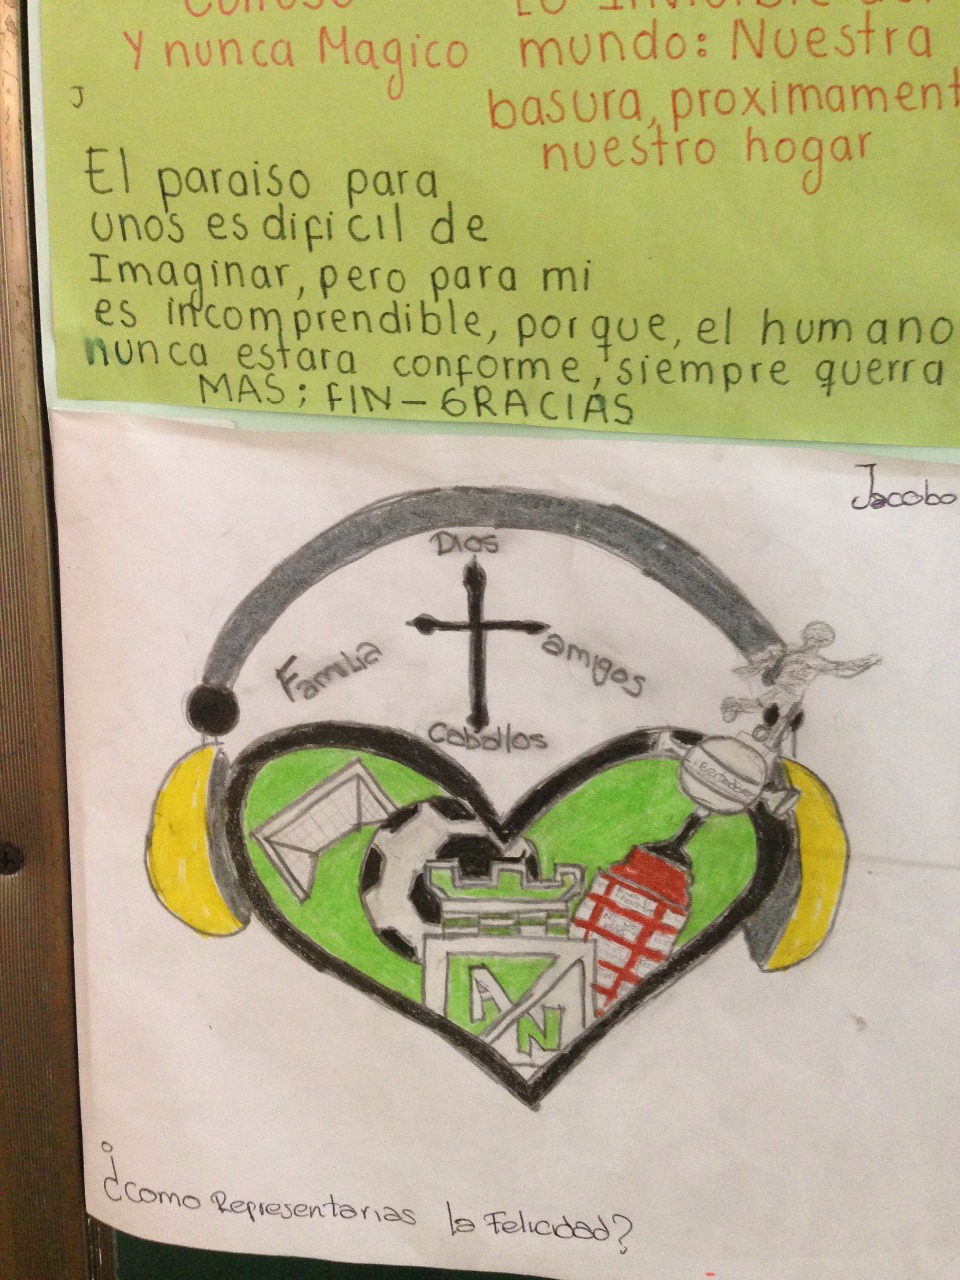 Y nunca Magico
mundo: Nuestra
basura, proximament
nuestro hogar
J
El paraiso para
unos es dificil de
Imaginar, pero para mi
es incomprendible, porque, el humano
nunca estara conforme, siempre querra
MAS; FIN-GRACIAS
Jacobo
Dios
Familia
amigos
Caballos
Libertadores
AN
¿como Representarias la Felicidad?